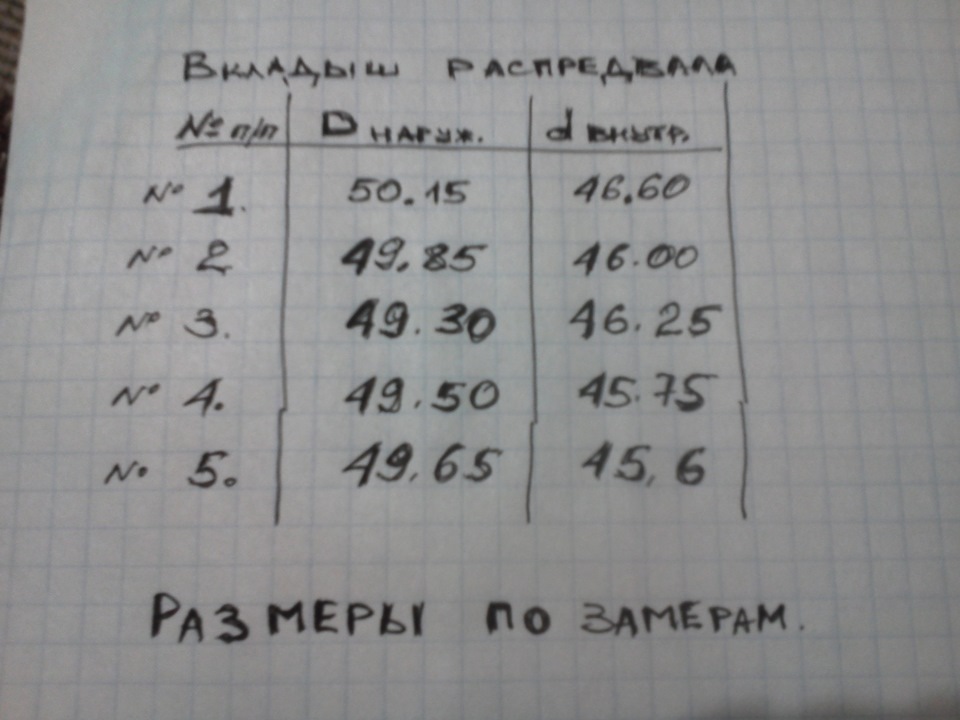 Вкладыш распредвала
№ п/п D наруж. d внутр.
№ 1. 50.15 46.60
№ 2 49.85 46.00
№ 3. 49.30 46.25
№ 4. 49.50 45.75
№ 5. 49.65 45,6
Размеры по замерам.